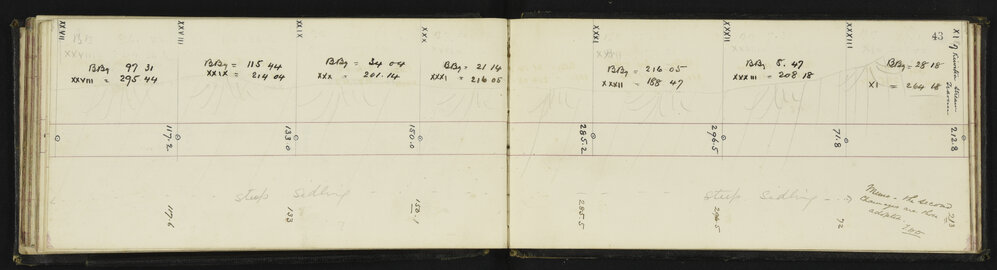 XXVII
XXVIII
XXIX
XXX
XXXI
XXXII
XXXIII
43
BBy 97 31
XXVIII = 295 44
BBy = 115 44
XXIX = 214 04
BBy = 34 04
XXX = 201.14
BBy = 21.14
XXXI = 216 05
BBy = 216 05
XXXII = 188 47
BBy 8.47
XXXIII = 208 18
BBy = 28 18
XI = 264 18
117.2
133.0
150.0
285.2
296.5
71.8
212.8
steep sidling
steep sidling
117.6
133
150.1
285.5
296.5
72
213
Memo - the second
chainages are those
adopted